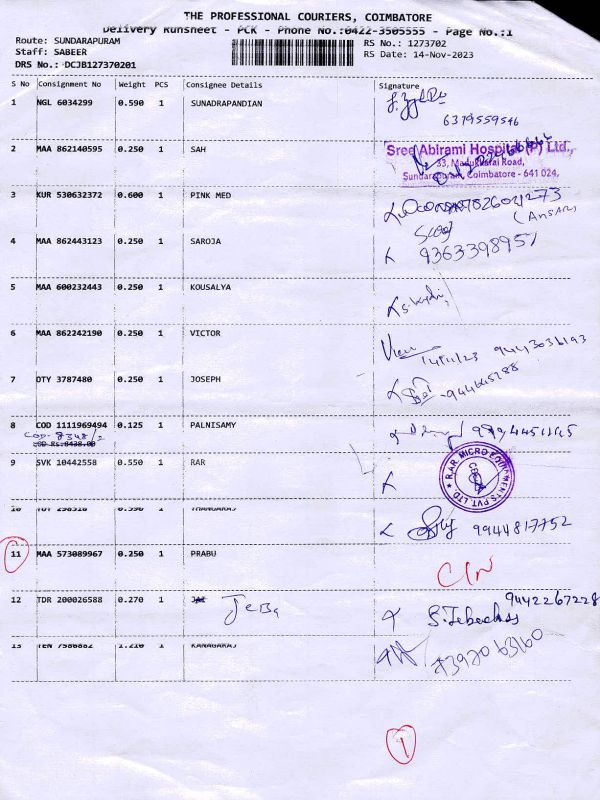 THE PROFESSIONAL COURIERS, COIMBATORE
Delivery Runsheet - PCK - Phone No.:0422-3505555 - Page No.:1
Route: SUNDARAPURAM
RS No.: 1273702
Staff: SABEER
RS Date: 14-Nov-2023
DRS No.: DCJB127370201
S No Consignment No Weight PCS Consignee Details Signature
1 NGL 6034299 0.590 1 SUNADRAPANDIAN
6379559546
2 MAA 862140595 0.250 1 SAH
Sree Abirami Hospital (P) Ltd.,
33, Madukkarai Road,
Sundarapuram, Coimbatore - 641 024,
3 KUR 530632372 0.600 1 PINK MED
(ANSARI
4 MAA 862443123 0.250 1 SAROJA
9363398957
5 MAA 600232443 0.250 1 KOUSALYA
6 MAA 862242190 0.250 1 VICTOR
14/11/23 9443036193
7 DTY 3787480 0.250 1 JOSEPH
8 COD 1111969494 0.125 1 PALNISAMY
COD Rs:8438.00
9 SVK 10442558 0.550 1 RAR
R.A.R. MICRO COMPONENTS PVT LTD
CBE
10 0.590 1 THANGARAJ
9944817752
11 MAA 573089967 0.250 1 PRABU
C/N
12 TDR 200026588 0.270 1 Jeba
9442267228
13 TEN 7586882 1.210 1 KANAGARAJ
1